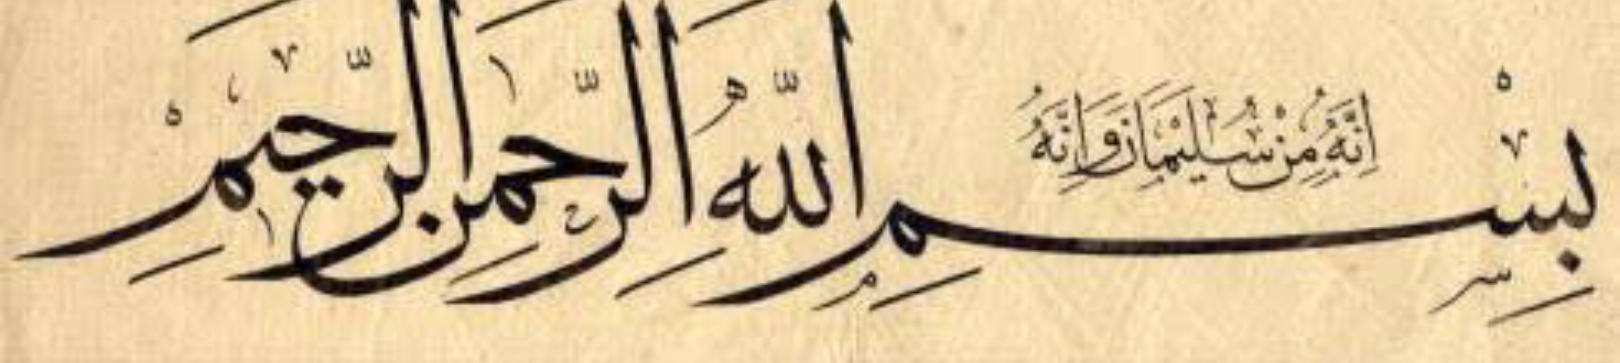 اِنَّهُ مِنْ سُلَيْمَانَ وَاِنَّهُ
بِسْمِ اللّٰهِ الرَّحْمٰنِ الرَّحِيمِ